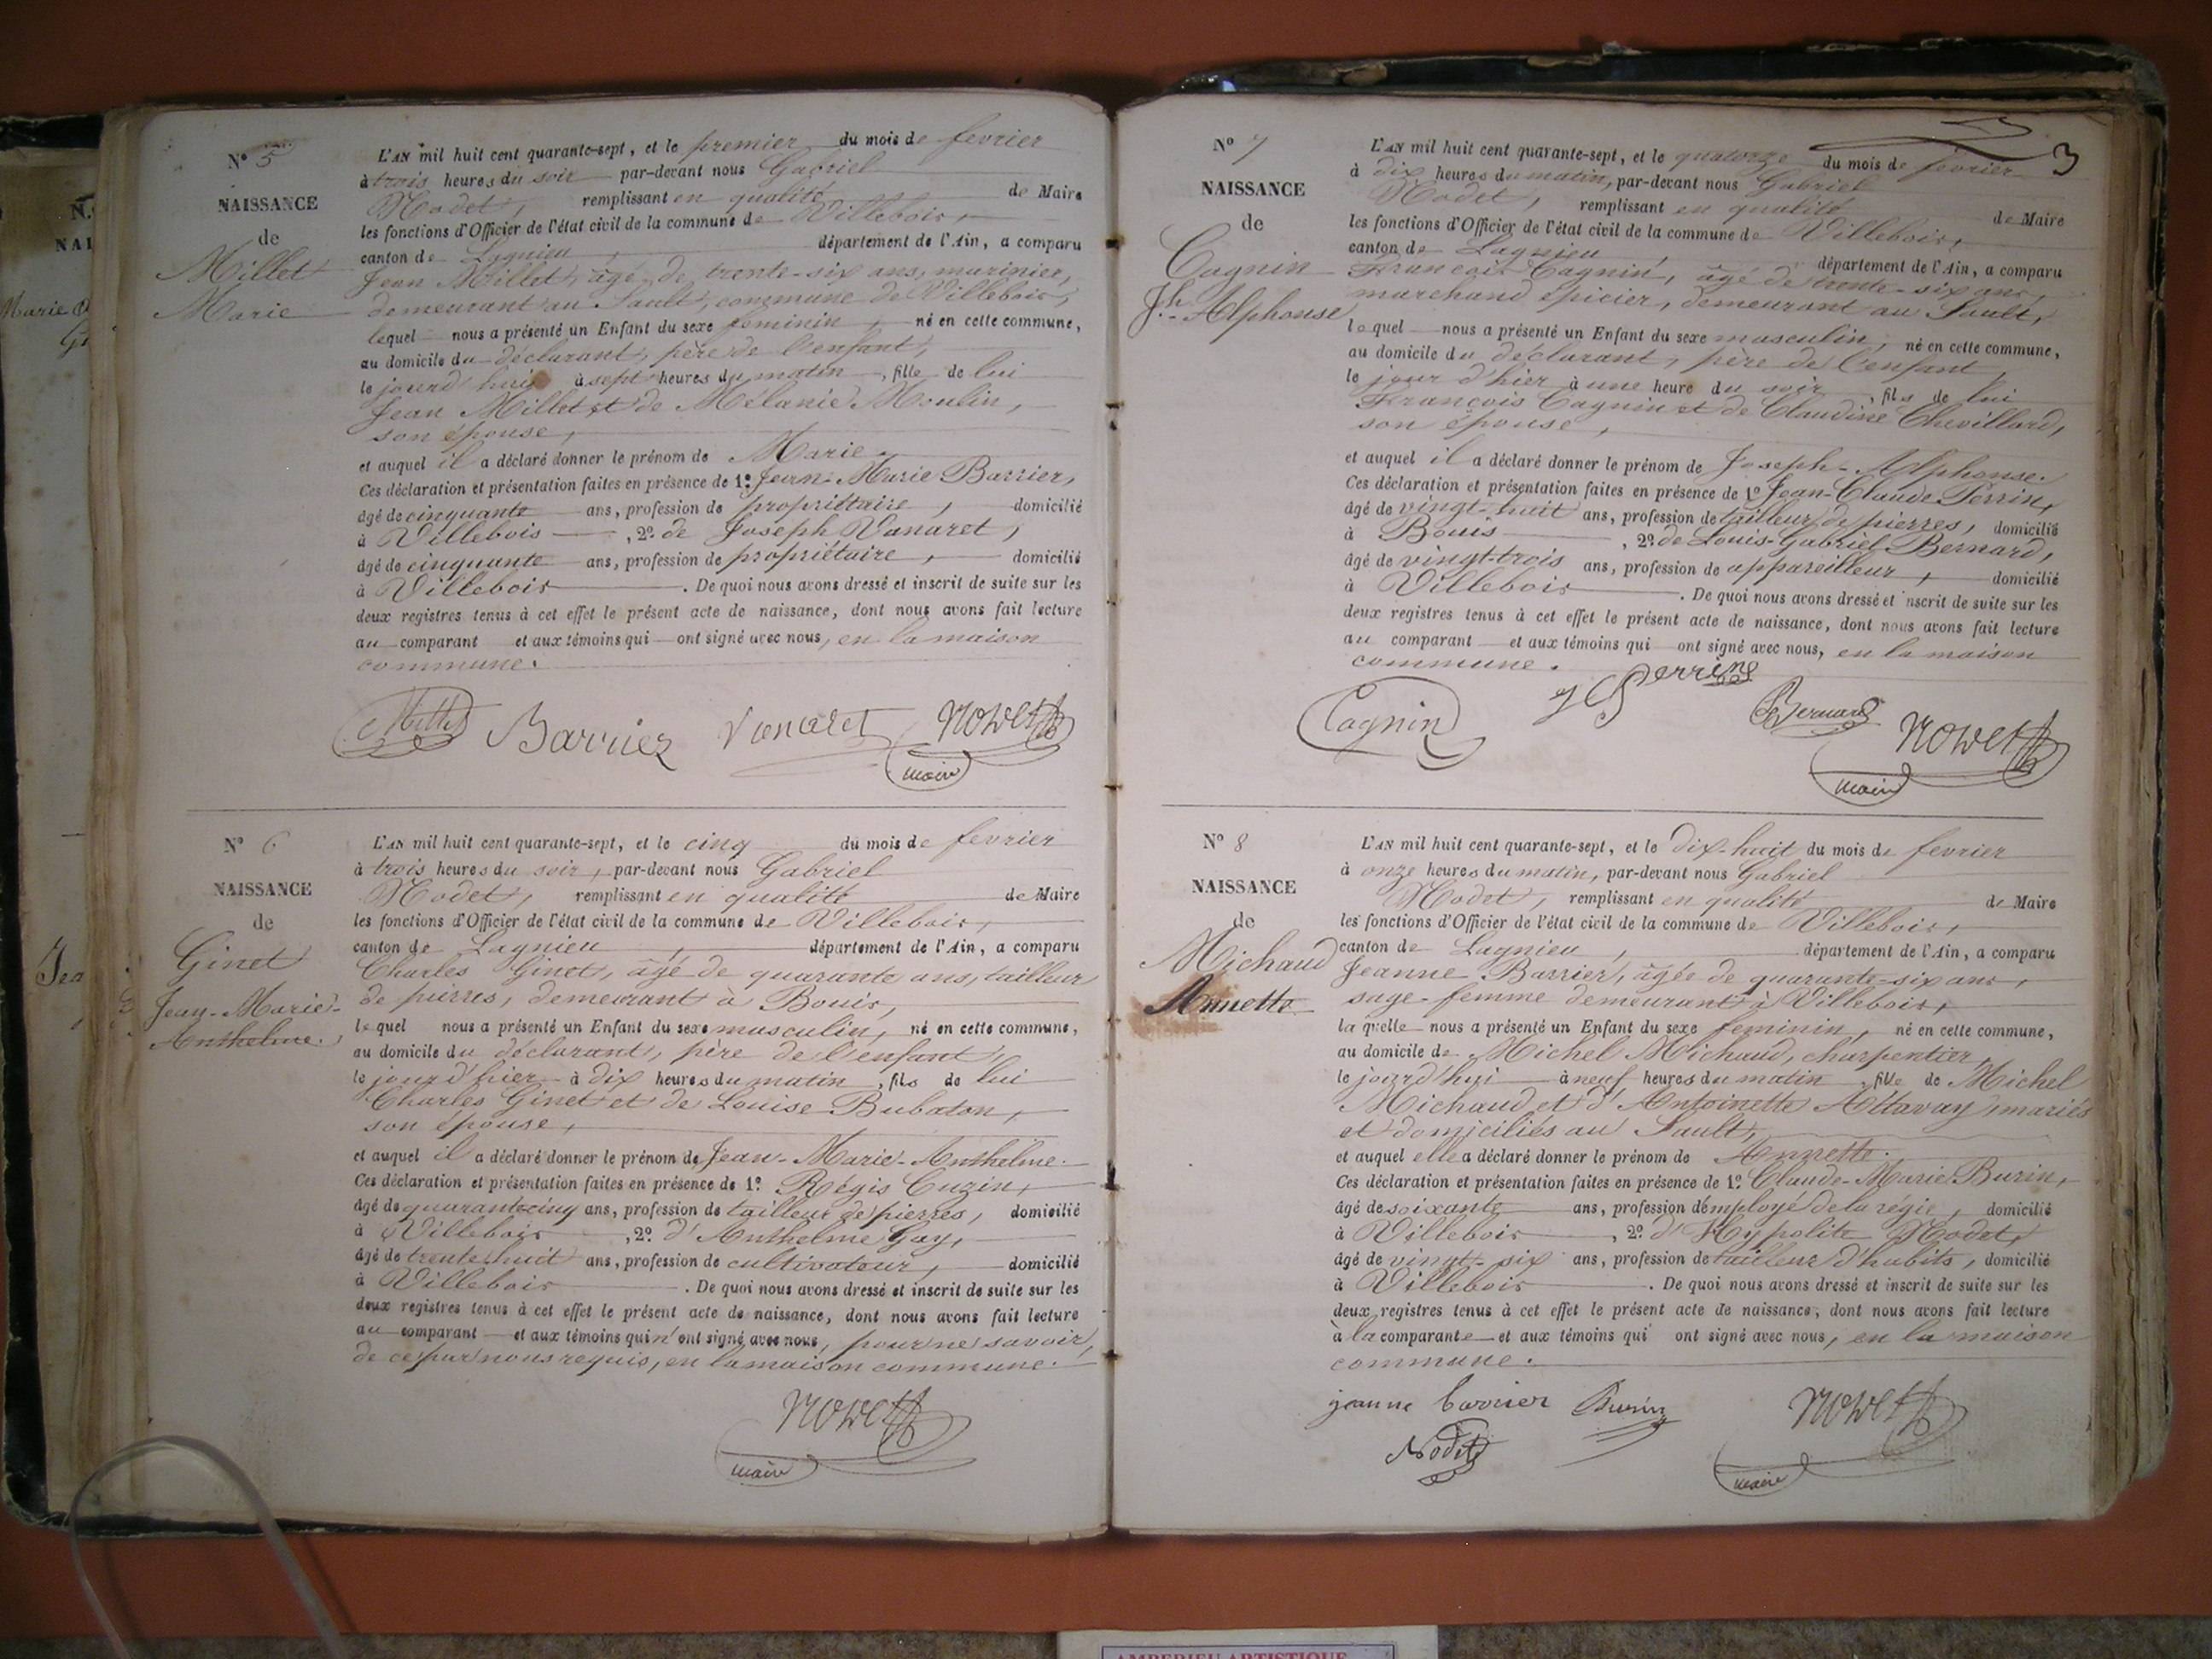 N° 5
NAISSANCE
de
Millet
Marie
L'AN mil huit cent quarante-sept, et le premier du mois de fevrier
à trois heures du soir par-devant nous Gabriel
Nodet, remplissant en qualité de Maire
les fonctions d'Officier de l'état civil de la commune de Villebois,
canton de Lagnieu, département de l'Ain, a comparu
Jean Millet, âgé de trente-six ans, marinier,
demeurant au Sault, commune de Villebois,
lequel nous a présenté un Enfant du sexe feminin, né en cette commune,
au domicile du déclarant, père de l'enfant,
le jourd'hui à sept heures du matin, fille de lui
Jean Millet et de Mélanie Moulin,
son épouse,
et auquel il a déclaré donner le prénom de Marie.
Ces déclaration et présentation faites en présence de 1° Jean-Marie Barrier,
âgé de cinquante ans, profession de propriétaire, domicilié
à Villebois, 2° de Joseph Vanaret,
âgé de cinquante ans, profession de propriétaire, domicilié
à Villebois. De quoi nous avons dressé et inscrit de suite sur les
deux registres tenus à cet effet le présent acte de naissance, dont nous avons fait lecture
au comparant et aux témoins qui ont signé avec nous, en la maison
commune.
Millet Barrier Vanaret Nodet
maire
N° 6
NAISSANCE
de
Ginet
Jean-Marie-
Anthelme.
L'AN mil huit cent quarante-sept, et le cinq du mois de fevrier
à trois heures du soir, par-devant nous Gabriel
Nodet, remplissant en qualité de Maire
les fonctions d'Officier de l'état civil de la commune de Villebois,
canton de Lagnieu, département de l'Ain, a comparu
Charles Ginet, âgé de quarante ans, tailleur
de pierres, demeurant à Bouis,
lequel nous a présenté un Enfant du sexe masculin, né en cette commune,
au domicile du déclarant, père de l'enfant,
le jour d'hier à dix heures du matin, fils de lui
Charles Ginet et de Louise Bubaton,
son épouse,
et auquel il a déclaré donner le prénom de Jean-Marie-Anthelme.
Ces déclaration et présentation faites en présence de 1° Régis Cuzin,
âgé de quarante-cinq ans, profession de tailleur de pierres, domicilié
à Villebois, 2° d'Anthelme Gay,
âgé de trente-huit ans, profession de cultivateur, domicilié
à Villebois. De quoi nous avons dressé et inscrit de suite sur les
deux registres tenus à cet effet le présent acte de naissance, dont nous avons fait lecture
au comparant et aux témoins qui n'ont signé avec nous, pour ne savoir,
de ce par nous requis, en la maison commune.
Nodet
maire
3
N° 7
NAISSANCE
de
Cagnin
Jh. Alphonse
L'AN mil huit cent quarante-sept, et le quatorze du mois de fevrier
à dix heures du matin, par-devant nous Gabriel
Nodet, remplissant en qualité de Maire
les fonctions d'Officier de l'état civil de la commune de Villebois,
canton de Lagnieu, département de l'Ain, a comparu
François Cagnin, âgé de trente-six ans,
marchand épicier, demeurant au Sault,
lequel nous a présenté un Enfant du sexe masculin, né en cette commune,
au domicile du déclarant, père de l'enfant,
le jour d'hier à une heure du soir, fils de lui
François Cagnin et de Claudine Chevillard,
son épouse,
et auquel il a déclaré donner le prénom de Joseph-Alphonse.
Ces déclaration et présentation faites en présence de 1° Jean-Claude Perrin,
âgé de vingt-huit ans, profession de tailleur de pierres, domicilié
à Bouis, 2° de Louis-Gabriel Bernard,
âgé de vingt-trois ans, profession de appareilleur, domicilié
à Villebois. De quoi nous avons dressé et inscrit de suite sur les
deux registres tenus à cet effet le présent acte de naissance, dont nous avons fait lecture
au comparant et aux témoins qui ont signé avec nous, en la maison
commune.
Cagnin JC Perrin Bernard Nodet
maire
N° 8
NAISSANCE
de
Michaud
Annette
L'AN mil huit cent quarante-sept, et le dix-huit du mois de fevrier
à onze heures du matin, par-devant nous Gabriel
Nodet, remplissant en qualité de Maire
les fonctions d'Officier de l'état civil de la commune de Villebois,
canton de Lagnieu, département de l'Ain, a comparu
Jeanne Barrier, âgée de quarante-six ans,
sage-femme demeurant à Villebois,
laquelle nous a présenté un Enfant du sexe feminin, né en cette commune,
au domicile de Michel Michaud, charpentier,
le jourd'hui à neuf heures du matin, fille de Michel
Michaud et d'Antoinette Attavay mariés
et domiciliés au Sault,
et auquel elle a déclaré donner le prénom de Annette.
Ces déclaration et présentation faites en présence de 1° Claude-Marie Burin,
âgé de soixante ans, profession d'employé de la régie, domicilié
à Villebois, 2° d'Hypolite Nodet,
âgé de vingt-six ans, profession de tailleur d'habits, domicilié
à Villebois. De quoi nous avons dressé et inscrit de suite sur les
deux registres tenus à cet effet le présent acte de naissance, dont nous avons fait lecture
à la comparante et aux témoins qui ont signé avec nous, en la maison
commune.
jeanne barrier Burin Nodet
Nodet maire
AMBERIEU ARTISTIQUE